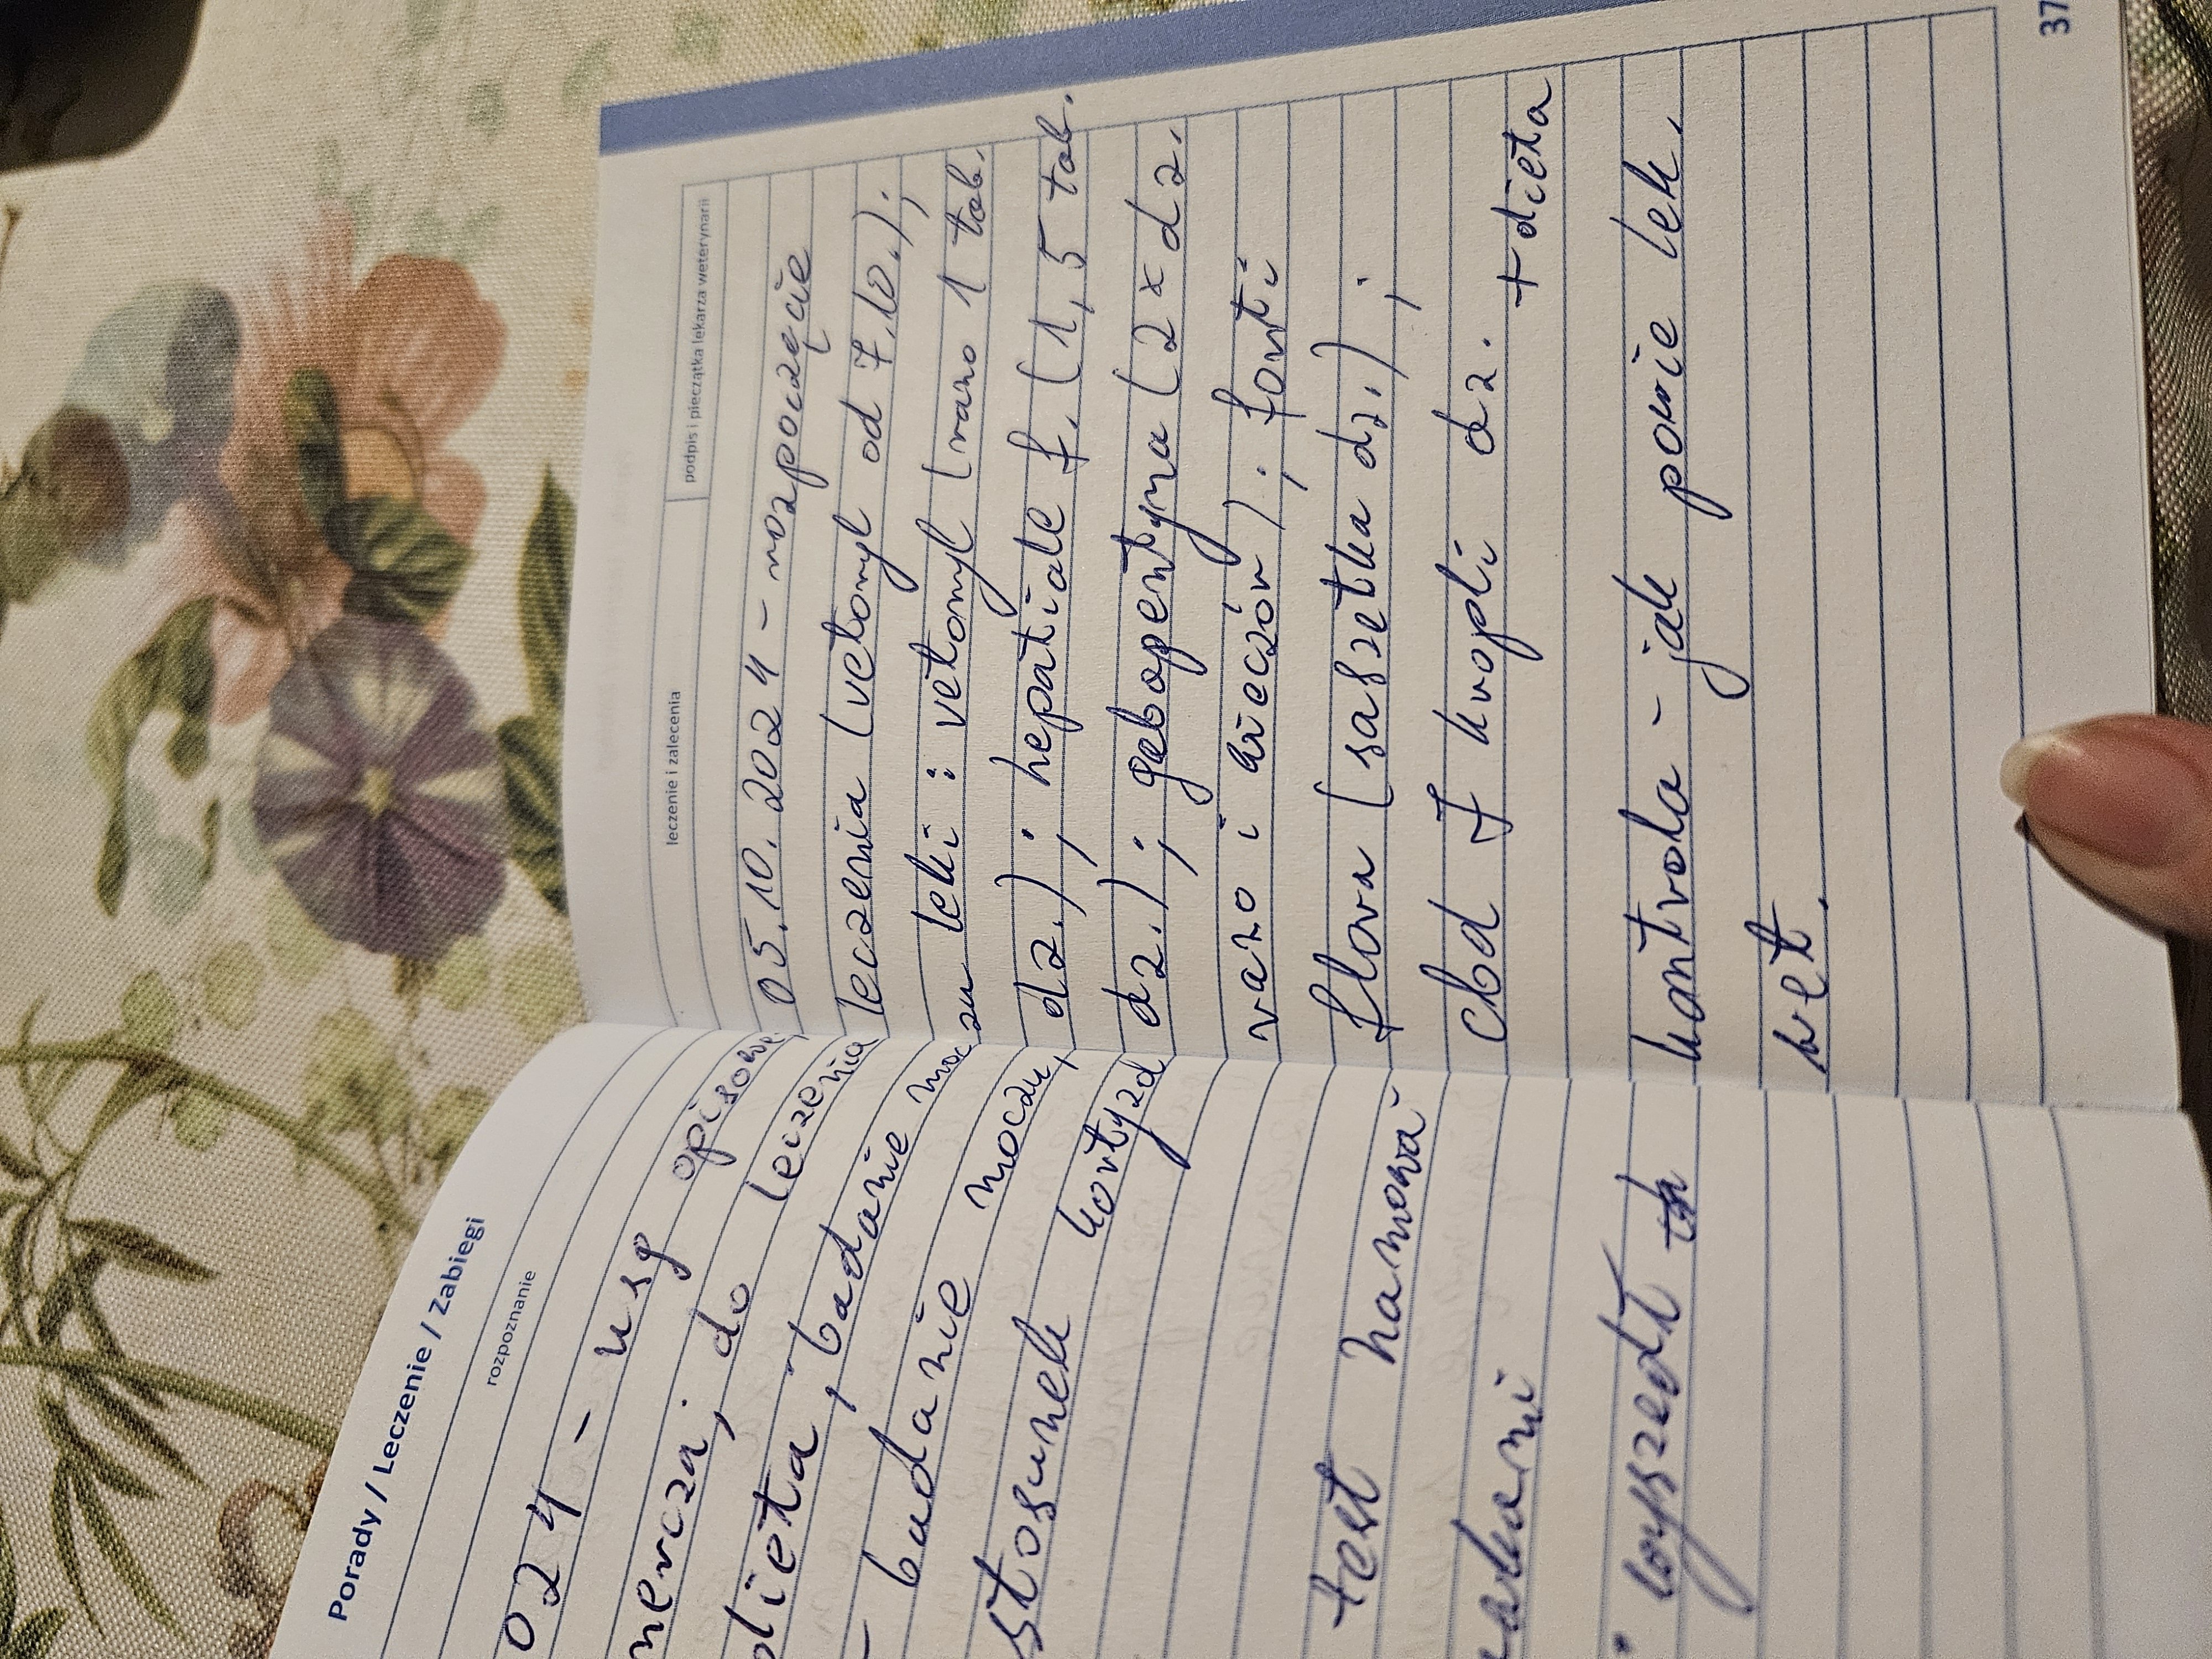 Porady / Leczenie / Zabiegi
rozpoznanie
024 - usg opisowe
nercza; do leczenia
dieta; badanie mocz
- badanie moczu,
stosunek kortyzol
test hamowa
i wyszedł
leczenie i zalecenia
podpis i pieczątka lekarza weterynarii
05.10.2024 - rozpoczęcie
leczenia (vetomyl od 7.10.);
leki: vetomyl (rano 1 tab.
dz.); hepatiale f. (1,5 tab.
dz.); gabapentyna (2x dz.
rano i wieczór); forti
flora (saszetka dz.);
cbd 7 kropli dz. + dieta
kontrola - jak powie lek.
wet.
37